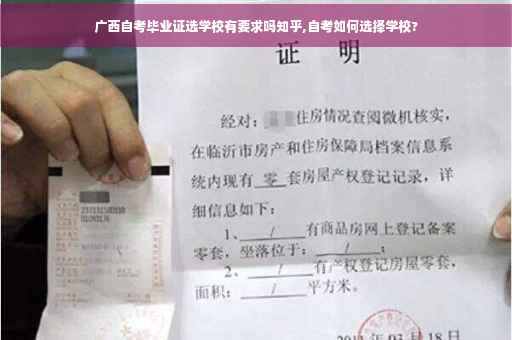 广西自考毕业证选学校有要求吗知乎,自考如何选择学校?
证 明
经对: 住房情况查阅微机核实,
在临沂市房产和住房保障局档案信息系
统内现有 零 套房屋产权登记记录, 详
细信息如下:
1、 / 有商品房网上登记备案
零套, 坐落位于: / ;
2、 / 有产权登记房屋零套,
面积: / 平方米。
年 03 月 18 日